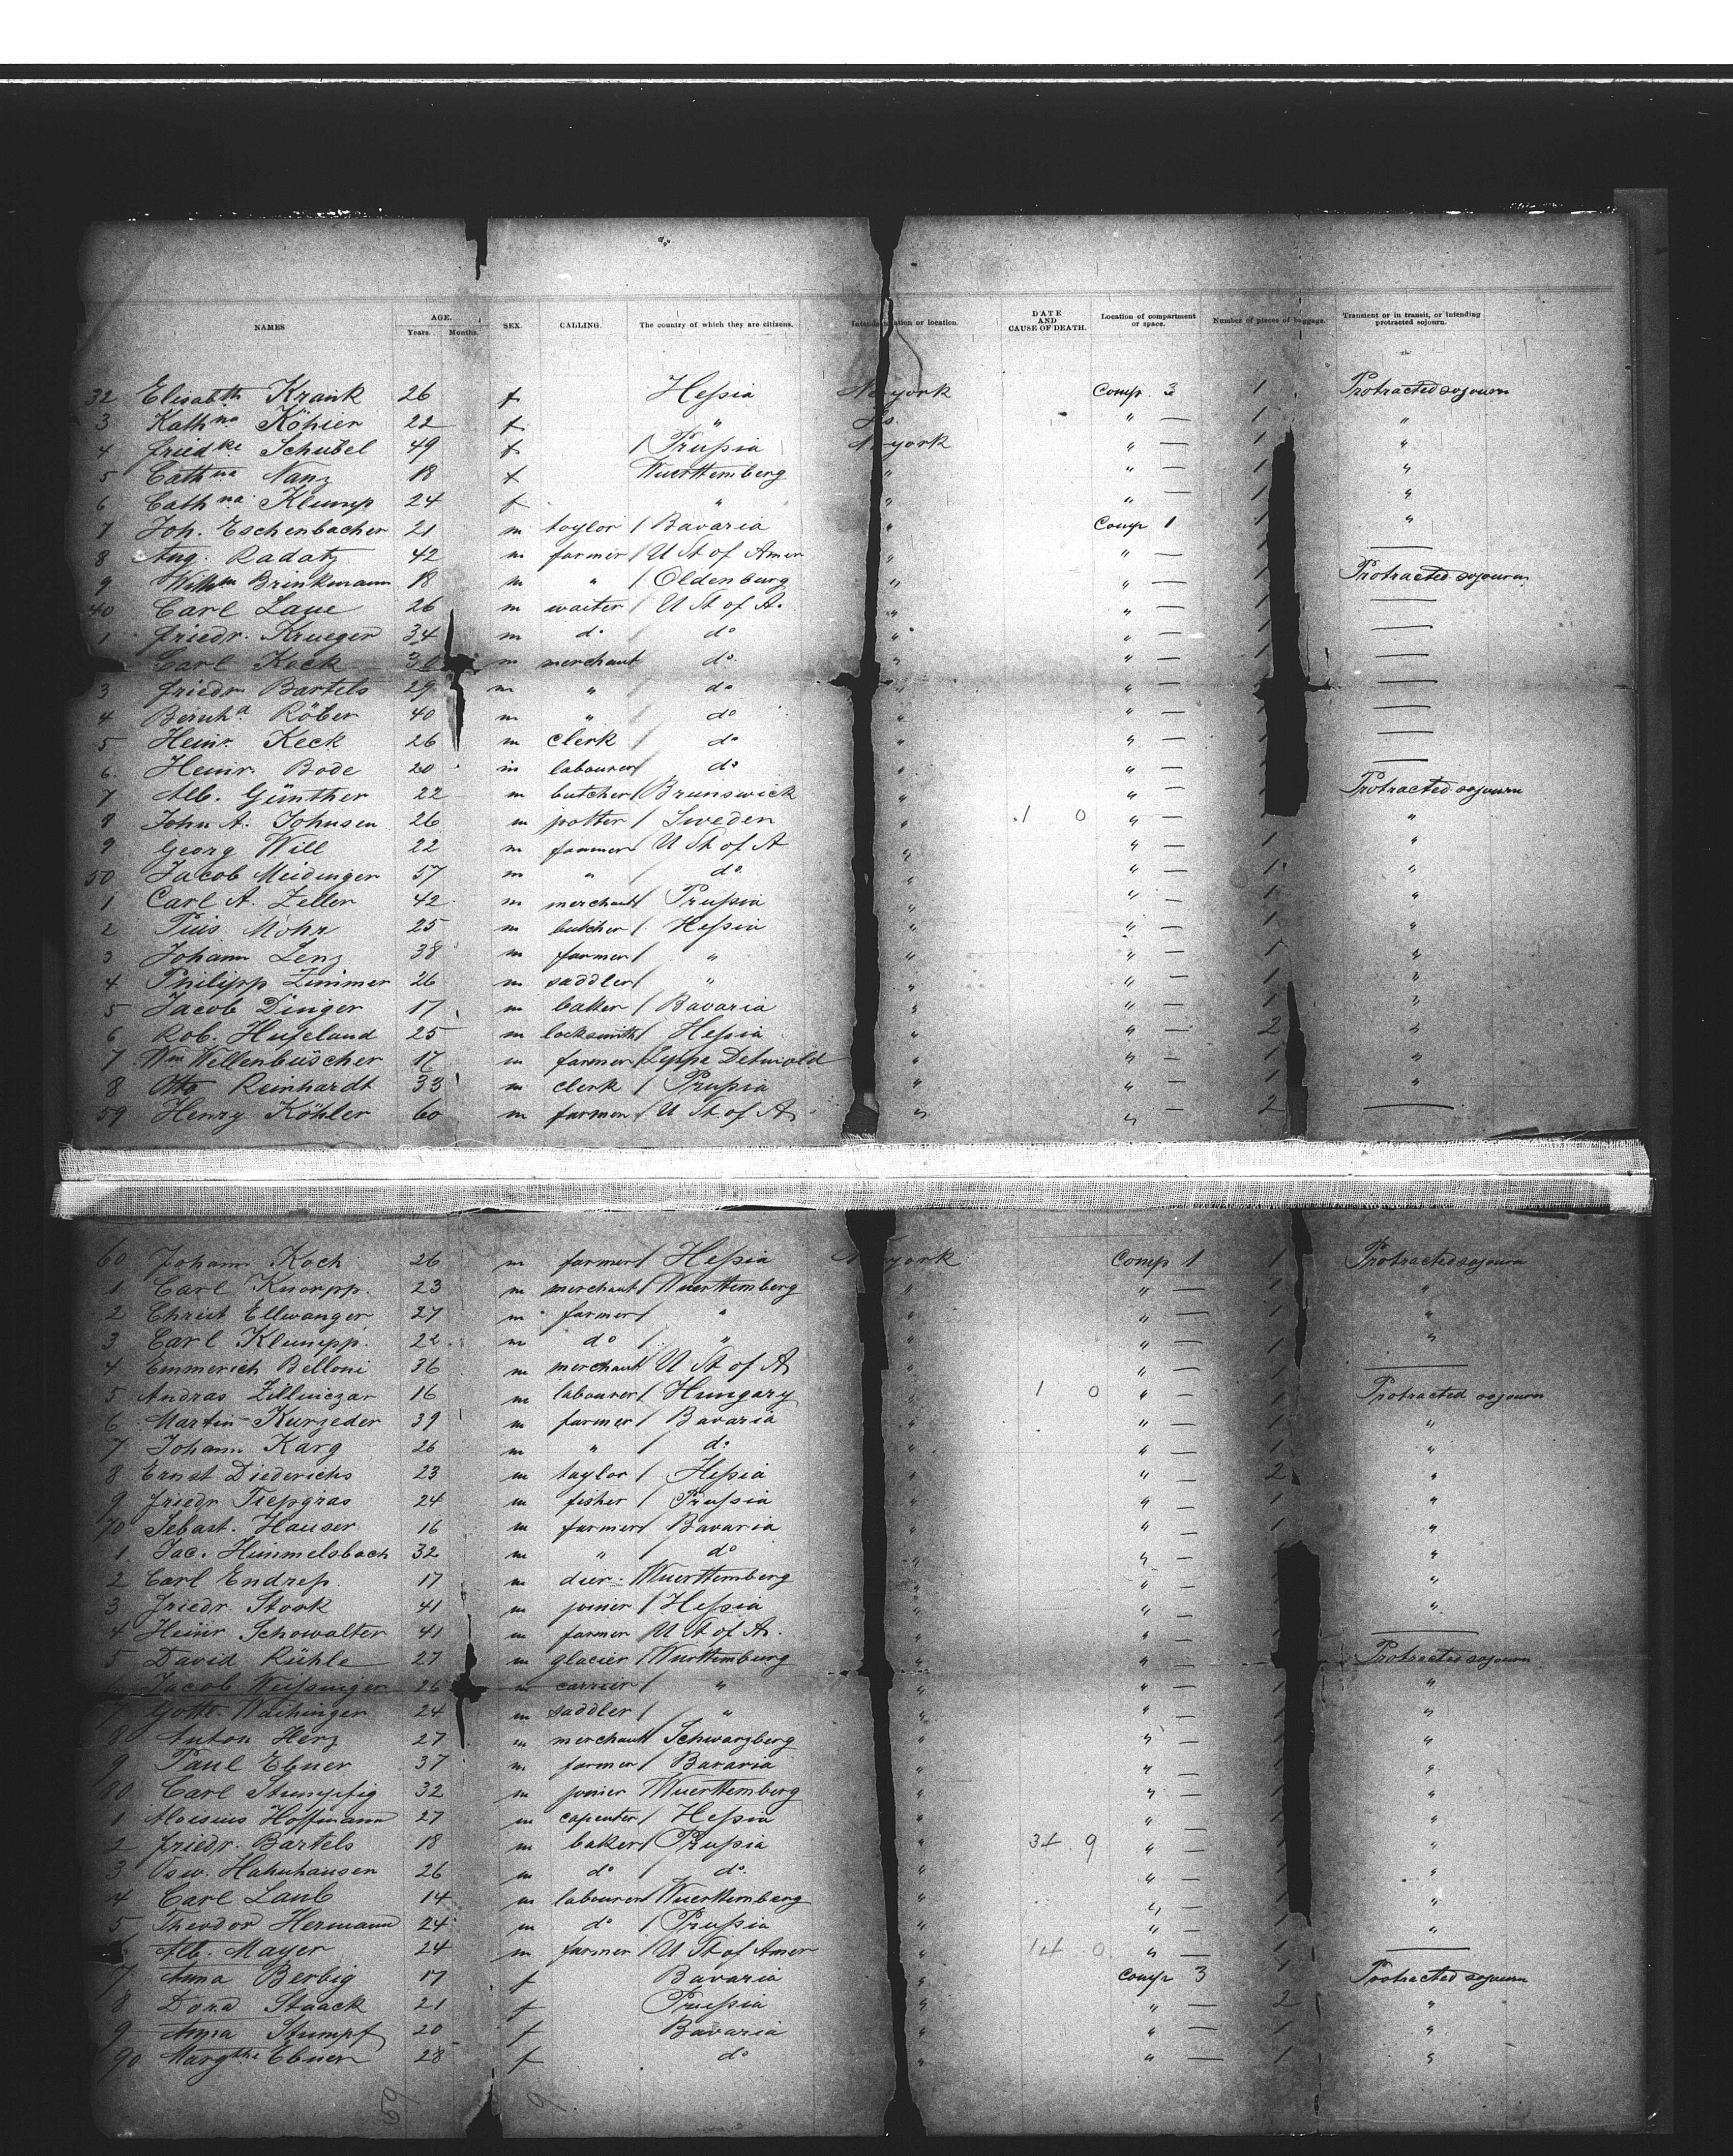 NAMES AGE. Years. Months. SEX. CALLING. The country of which they are citizens. DATE AND CAUSE OF DEATH. Location of compartment or space. Number of pieces of baggage. Transient or in transit, or intending protracted sojourn.
32 Elisabth Krank 26 f Heſsia New york Comp. 3 1 Protracted sojourn
3 Kathna Köhier 22 f " " — 1 "
4 Friedke Schubel 49 f / Pruſsia N york " — 1 "
5 Cathna Nanz 18 f Wuerttemberg " " — 1 "
6 Cathna Klump 24 f " " " — 1 "
7 Joh. Eschenbacher 21 m taylor / Bavaria " Comp 1 1 "
8 Aug. Radatz 42 m farmer / U St of Amer " " — 1 —
9 Wilhm Brinkmann 18 m " / Oldenburg " " — 1 Protracted sojourn
40 Carl Laue 26 m waiter / U St of A. " " — 1 —
1 Friedr. Krueger 34 m do / do " " — 1 —
Carl Kock m merchant do " " — 1 —
3 Friedr Bartels 29 m " do " " — —
4 Bernhd Röber 40 m " do " " — —
5 Heinr. Keck 26 m clerk / do " " — —
6 Heinr. Bode 20 m labourer / do " " — —
7 Alb. Günther 22 m butcher / Brunswick " " — Protracted sojourn
8 John A. Johnsen 26 m potter / Sweden " 1 0 " — "
9 Georg Will 22 m farmer U St of A " " — 1 "
50 Jacob Meidinger 57 m " / do " " — 1 "
1 Carl A. Zeller 42 m merchant Pruſsia " " — 1 "
2 Pius Mohr 25 m butcher / Heſsia " " — 1 "
3 Johann Lenz 38 m farmer / " " " — 1 "
4 Philipp Zimmer 26 m saddler / " " " — 1 "
5 Jacob Dinger 17 m baker / Bavaria " " — 1 "
6 Rob. Hufeland 25 m locksmith / Heſsia " " — 2 "
7 Wm Wellenbüscher 17 m farmer / Lippe Detmold " " — 1 "
8 Otto Reinhardt 33 m clerk / Pruſsia " " — 1 "
59 Henry Köhler 60 m farmer / U St. of A " " — 2 —
60 Johann Koch 26 m farmer / Heſsia N york Comp 1 1 Protracted sojourn
1 Carl Knorpp. 23 m merchant / Wuerttemberg " " — 1 "
2 Christ Ellwanger 27 m farmer / " " " — 1 "
3 Carl Klumpp. 22 m do / " " " — 1 "
4 Emmerich Belloni 36 m merchant U St of A " " — 1 —
5 Andras 16 m labourer / Hungary " 1 0 " — 1 Protracted sojourn
6 Martin Kurzeder 39 m farmer / Bavaria " " — 1 "
7 Johann Karg 26 m " / do " " — 1 "
8 Ernst Diederichs 23 m taylor / Heſsia " " — 2 "
9 Friedr Tiepgras 24 m fisher / Pruſsia " " — 1 "
70 Sebast. Hauser 16 m farmer / Bavaria " " — 1 "
1 Jac. Himmelsbach 32 m " / do " " — "
2 Carl Endreſs. 17 m dier Wuerttemberg " " — "
3 Friedr. Stork 41 m joiner / Heſsia " " — "
4 Heinr Schowalter 41 m farmer / U St of A. " " — —
5 David Rühle 27 m glacier / Wurttemburg " " — Protracted sojourn
Jacob Weiſsinger 26 m carrier / " " " — "
7 Gottl. Waihinger 24 m saddler / " " " — "
8 Anton Herz 27 m merchant Schwarzberg " " — "
9 Paul Ebner 37 m farmer / Bavaria " " — "
80 Carl Stumpfig 32 m joinier Wuerttemberg " " — "
1 Aloisius Hoffmann 27 m capenter / Heſsia " " — "
2 Friedr. Bartels 18 m baker / Pruſsia " 34 9 " — "
3 Osw. Hahnhausen 26 m do / do. " " — "
4 Carl Laub 14 m labourer Wuerttemberg " " — "
5 Theodor Hermann 24 m do / Pruſsia " " — 1 "
Alb. Mayer 24 m farmer / U St of Amer " 14 0 " — 1 —
7 Anna Berbig 17 f Bavaria " Comp 3 1 Protracted sojourn
8 Dora Staack 21 f Pruſsia " " — 2 "
9 Anna Stumpf 20 f Bavaria " " — 1 "
90 Margthe Ebner 28 f do " " — 1 "
59 9